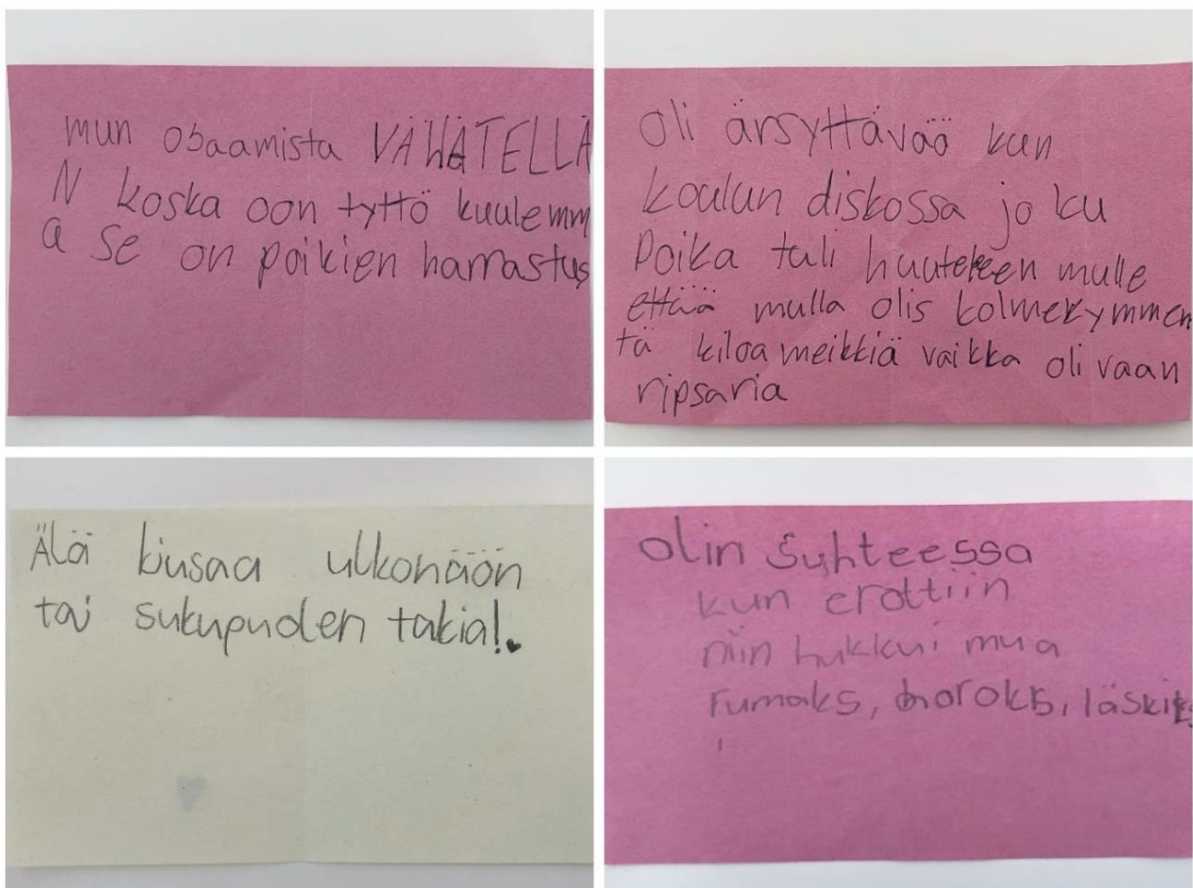 mun osaamista VÄHÄTELLÄ
N koska oon tyttö kuulemm
a se on poikien harrastus
Oli ärsyttävää kun
koulun diskossa joku
Poika tuli huuteleen mulle
ettää mulla olis kolmekymmen
tä kiloa meikkiä vaikka oli vaan
ripsaria
Älä kiusaa ulkonäön
tai sukupuolen takia!
olin suhteessa
kun erottiin
niin hukkui mua
rumaks, horoks, läskiks